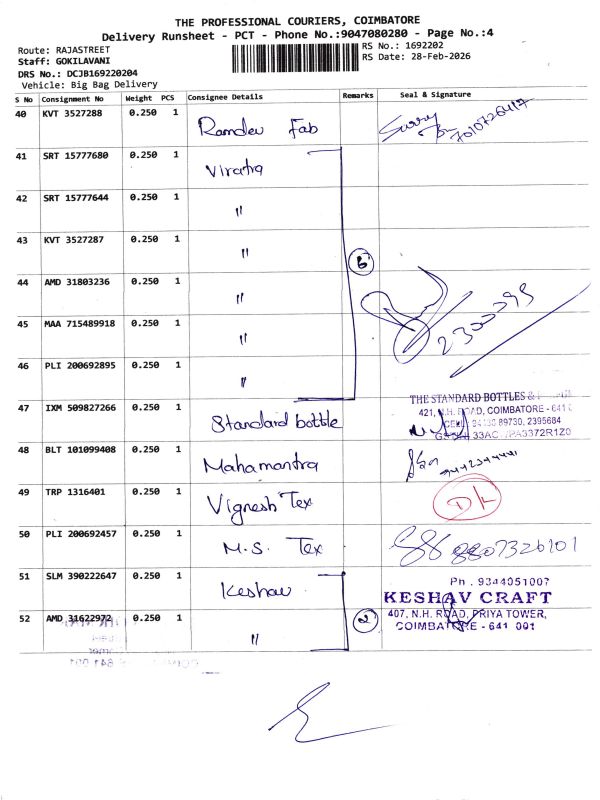 THE PROFESSIONAL COURIERS, COIMBATORE
Delivery Runsheet - PCT - Phone No.:9047080280 - Page No.:4
Route: RAJASTREET
RS No.: 1692202
Staff: GOKILAVANI
RS Date: 28-Feb-2026
DRS No.: DCJB169220204
Vehicle: Big Bag Delivery
S No Consignment No Weight PCS Consignee Details Remarks Seal & Signature
40 KVT 3527288 0.250 1 Ramdev Fab
41 SRT 15777680 0.250 1 Viratra
42 SRT 15777644 0.250 1 "
43 KVT 3527287 0.250 1 "
44 AMD 31803236 0.250 1 "
45 MAA 715489918 0.250 1 "
46 PLI 200692895 0.250 1 "
47 IXM 509827266 0.250 1 Standard bottle
THE STANDARD BOTTLES &
421, N.H. ROAD, COIMBATORE - 641
48 BLT 101099408 0.250 1 Mahamantra
49 TRP 1316401 0.250 1 Vignesh Tex
50 PLI 200692457 0.250 1 M.S. Tex 8807326101
51 SLM 390222647 0.250 1 Keshav
Ph. 9344051007
KESHAV CRAFT
407, N.H. ROAD, PRIYA TOWER,
COIMBATORE - 641 001
52 AMD 31622972 0.250 1 " 2